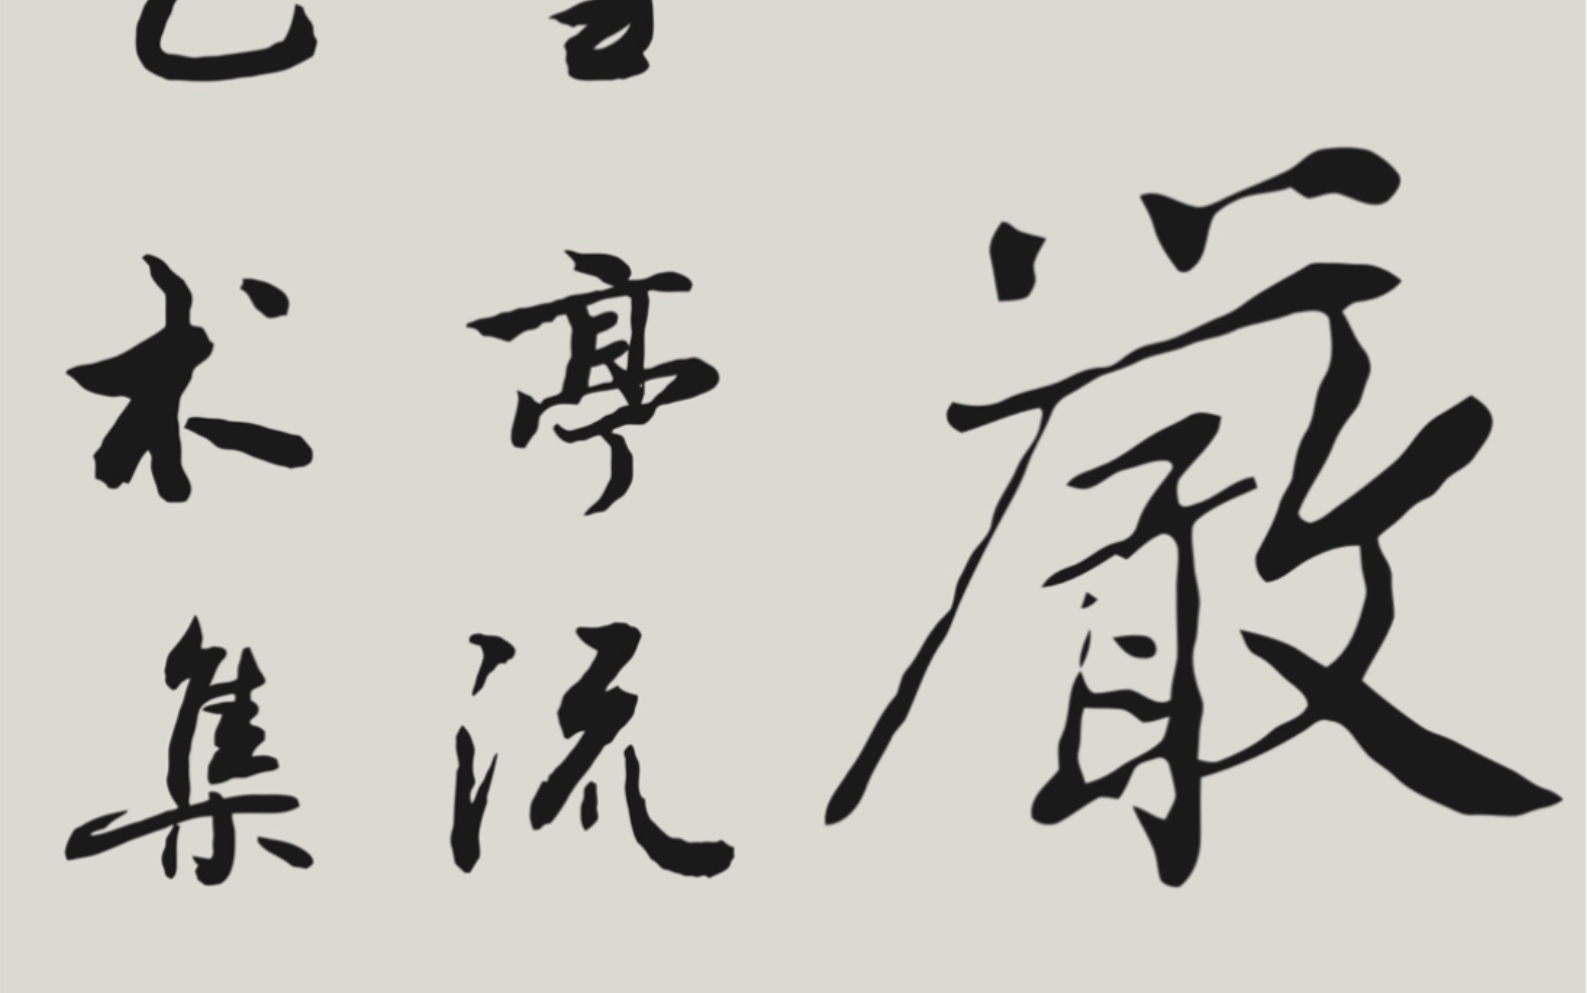 嚴
亭流
术集